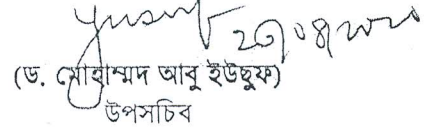 (ড. মোহাম্মদ আবু ইউছুফ)
উপসচিব